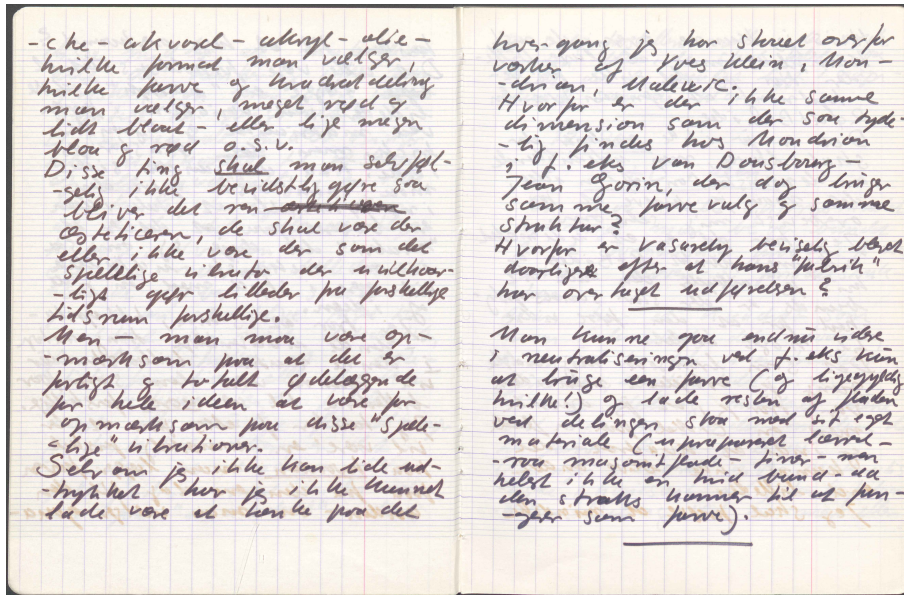 -che - akvarel - akryl - olie -
hvilke format man vælger,
hvilke farve og kvadratdeling
man vælger, meget rød og
lidt blaat - eller lige megen
blaa og rød o.s.v.
Disse ting skal man selvføl-
-gelig ikke bevidstlig gøre saa
bliver det ren
æsteticeren, de skal være der
eller ikke være der som det
sjællige vibrato der uvilkaar-
-ligt gør billeder fra forskellige
tidsrum forskellige.
Men - man maa være op-
-mærksom paa at det er
farligt og totalt ødelæggende
for hele ideen at være for
opmærksom paa disse "sjæl-
-lige" vibrationer.
Selvom jeg ikke kan lide ud-
-trykket har jeg ikke kunnet
lade være at tænke paa det
hver gang jeg har staaet overfor
værker af Yves Klein, Mon-
-drian, Malewic.
Hvorfor er der ikke samme
dimension som der saa tyde-
-lig findes hos Mondrian
i f. eks van Dousbourg -
Jean Gorin, der dog bruger
samme farvevalg og samme
struktur?
Hvorfor er Vasarely beviselig blevet
daarligere efter at hans "fabrik"
har overtaget udførelsen?
Man kunne gaa endnu videre
i neutraliseringen ved f. eks kun
at bruge een farve (og ligegyldig
hvilke!) og lade resten af fladen
ved delingen staa med sit eget
materiale (upræpareret lærred -
raa masonitplade - finer - men
helst ikke en hvid bund - da
den straks kommer til at fun-
-gere som farve).